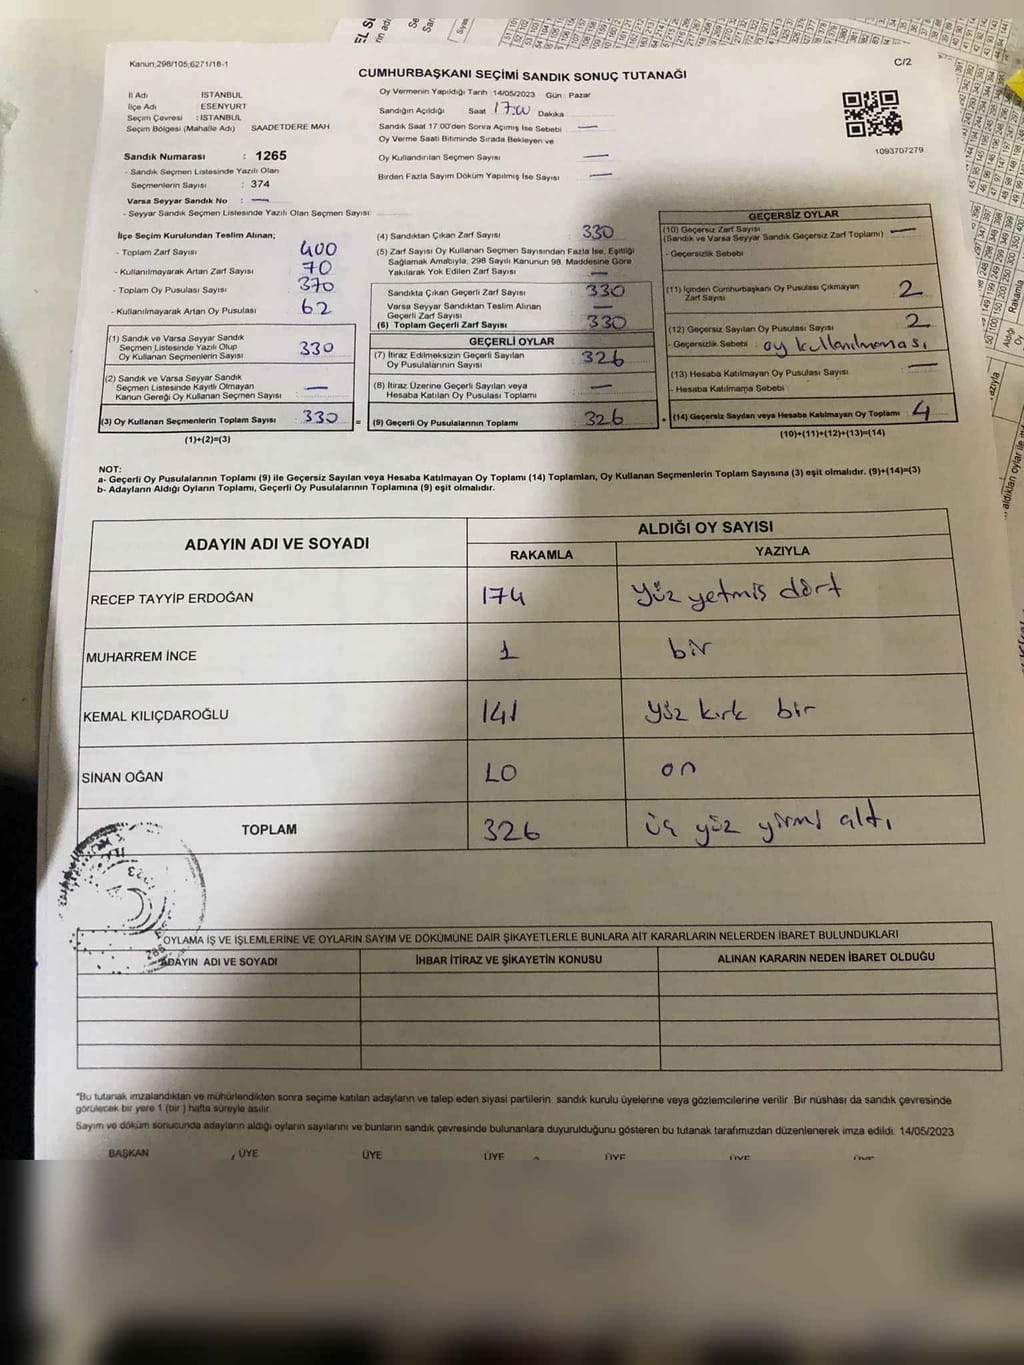 Kanun,298/105,6271/18-1
C/2
CUMHURBAŞKANI SEÇİMİ SANDIK SONUÇ TUTANAĞI
İl Adı İSTANBUL
İlçe Adı : ESENYURT
Seçim Çevresi : İSTANBUL
Seçim Bölgesi (Mahalle Adı) SAADETDERE MAH
Oy Vermenin Yapıldığı Tarih 14/05/2023 Gün : Pazar
Sandığın Açıldığı Saat 17:00 Dakika
Sandık Saat 17:00'den Sonra Açımış İse Sebebi —
Oy Verme Saati Bitiminde Sırada Bekleyen ve
Oy Kullandırılan Seçmen Sayısı —
Birden Fazla Sayım Döküm Yapılmış İse Sayısı —
1093707279
Sandık Numarası : 1265
- Sandık Seçmen Listesinde Yazılı Olan
Seçmenlerin Sayısı : 374
Varsa Seyyar Sandık No : —
- Seyyar Sandık Seçmen Listesinde Yazılı Olan Seçmen Sayısı
İlçe Seçim Kurulundan Teslim Alınan;
- Toplam Zarf Sayısı 400
- Kullanılmayarak Artan Zarf Sayısı 70
- Toplam Oy Pusulası Sayısı 370
- Kullanılmayarak Artan Oy Pusulası 62
(1) Sandık ve Varsa Seyyar Sandık
Seçmen Listesinde Yazılı Olup
Oy Kullanan Seçmenlerin Sayısı 330
(2) Sandık ve Varsa Seyyar Sandık
Seçmen Listesinde Kayıtlı Olmayan
Kanun Gereği Oy Kullanan Seçmen Sayısı —
(3) Oy Kullanan Seçmenlerin Toplam Sayısı 330 =
(1)+(2)=(3)
(4) Sandıktan Çıkan Zarf Sayısı 330
(5) Zarf Sayısı Oy Kullanan Seçmen Sayısından Fazla İse, Eşitliği
Sağlamak Amacıyla, 298 Sayılı Kanunun 98. Maddesine Göre
Yakılarak Yok Edilen Zarf Sayısı —
Sandıkta Çıkan Geçerli Zarf Sayısı 330
Varsa Seyyar Sandıktan Teslim Alınan
Geçerli Zarf Sayısı —
(6) Toplam Geçerli Zarf Sayısı 330
GEÇERLİ OYLAR
(7) İtiraz Edilmeksizin Geçerli Sayılan
Oy Pusulalarının Sayısı 326
(8) İtiraz Üzerine Geçerli Sayılan veya
Hesaba Katılan Oy Pusulası Toplamı —
(9) Geçerli Oy Pusulalarının Toplamı 326 +
GEÇERSİZ OYLAR
(10) Geçersiz Zarf Sayısı —
(Sandık ve Varsa Seyyar Sandık Geçersiz Zarf Toplamı)
- Geçersizlik Sebebi
(11) İçinden Cumhurbaşkanı Oy Pusulası Çıkmayan 2
Zarf Sayısı
(12) Geçersiz Sayılan Oy Pusulası Sayısı 2
- Geçersizlik Sebebi oy kullanılmaması
(13) Hesaba Katılmayan Oy Pusulası Sayısı —
- Hesaba Katılmama Sebebi
(14) Geçersiz Sayılan veya Hesaba Katılmayan Oy Toplamı 4
(10)+(11)+(12)+(13)=(14)
NOT:
a- Geçerli Oy Pusulalarının Toplamı (9) ile Geçersiz Sayılan veya Hesaba Katılmayan Oy Toplamı (14) Toplamları, Oy Kullanan Seçmenlerin Toplam Sayısına (3) eşit olmalıdır. (9)+(14)=(3)
b- Adayların Aldığı Oyların Toplamı, Geçerli Oy Pusulalarının Toplamına (9) eşit olmalıdır.
ADAYIN ADI VE SOYADI
ALDIĞI OY SAYISI
RAKAMLA YAZIYLA
RECEP TAYYİP ERDOĞAN 174 yüz yetmiş dört
MUHARREM İNCE 1 bir
KEMAL KILIÇDAROĞLU 141 yüz kırk bir
SİNAN OĞAN 10 on
TOPLAM 326 üç yüz yirmi altı
OYLAMA İŞ VE İŞLEMLERİNE VE OYLARIN SAYIM VE DÖKÜMÜNE DAİR ŞİKAYETLERLE BUNLARA AİT KARARLARIN NELERDEN İBARET BULUNDUKLARI
ADAYIN ADI VE SOYADI İHBAR İTİRAZ VE ŞİKAYETİN KONUSU ALINAN KARARIN NEDEN İBARET OLDUĞU
*Bu tutanak imzalandıktan ve mühürlendikten sonra seçime katılan adayların ve talep eden siyasi partilerin sandık kurulu üyelerine veya gözlemcilerine verilir. Bir nüshası da sandık çevresinde
görülecek bir yere 1 (bir) hafta süreyle asılır.
Sayım ve döküm sonucunda adayların aldığı oyların sayılarını ve bunların sandık çevresinde bulunanlara duyurulduğunu gösteren bu tutanak tarafımızdan düzenlenerek imza edildi. 14/05/2023
BAŞKAN ÜYE ÜYE ÜYE ÜYE ÜYE ÜYE